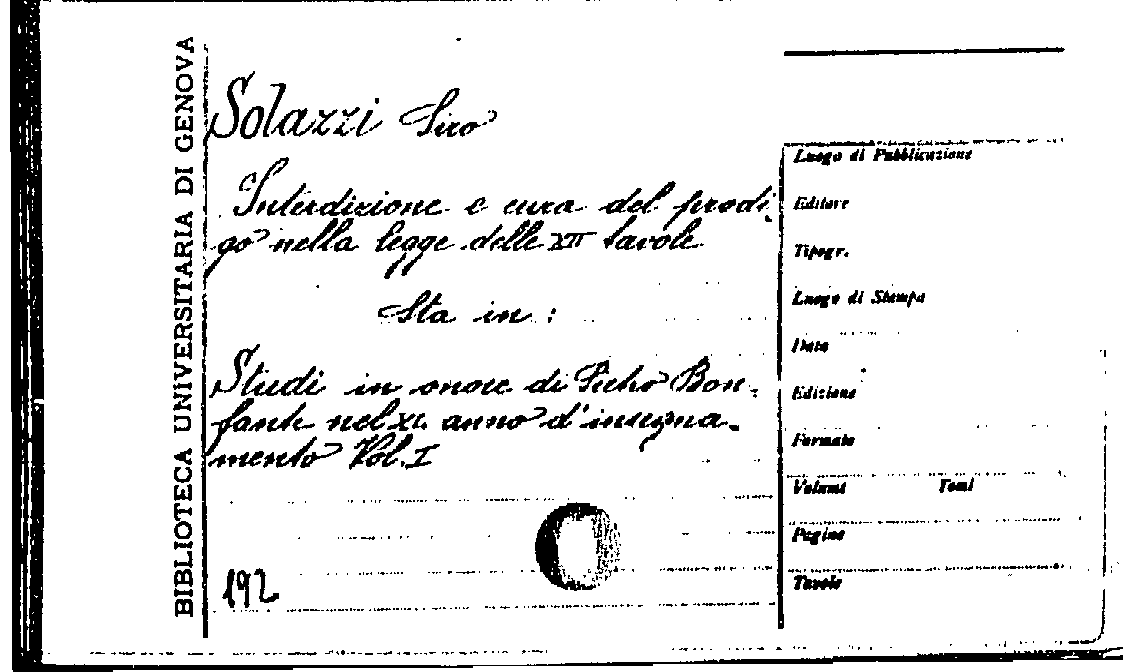 BIBLIOTECA UNIVERSITARIA DI GENOVA
Solazzi Siro
Interdizione e cura del prodi-
go nella legge delle XII tavole
Sta in:
Studi in onore di Pietro Bon-
fante nel XL anno d'insegna-
mento Vol. I
192
Luogo di Pubblicazione
Editore
Tipogr.
Luogo di Stampa
Data
Edizione
Formato
Volumi Tomi
Pagine
Tavole